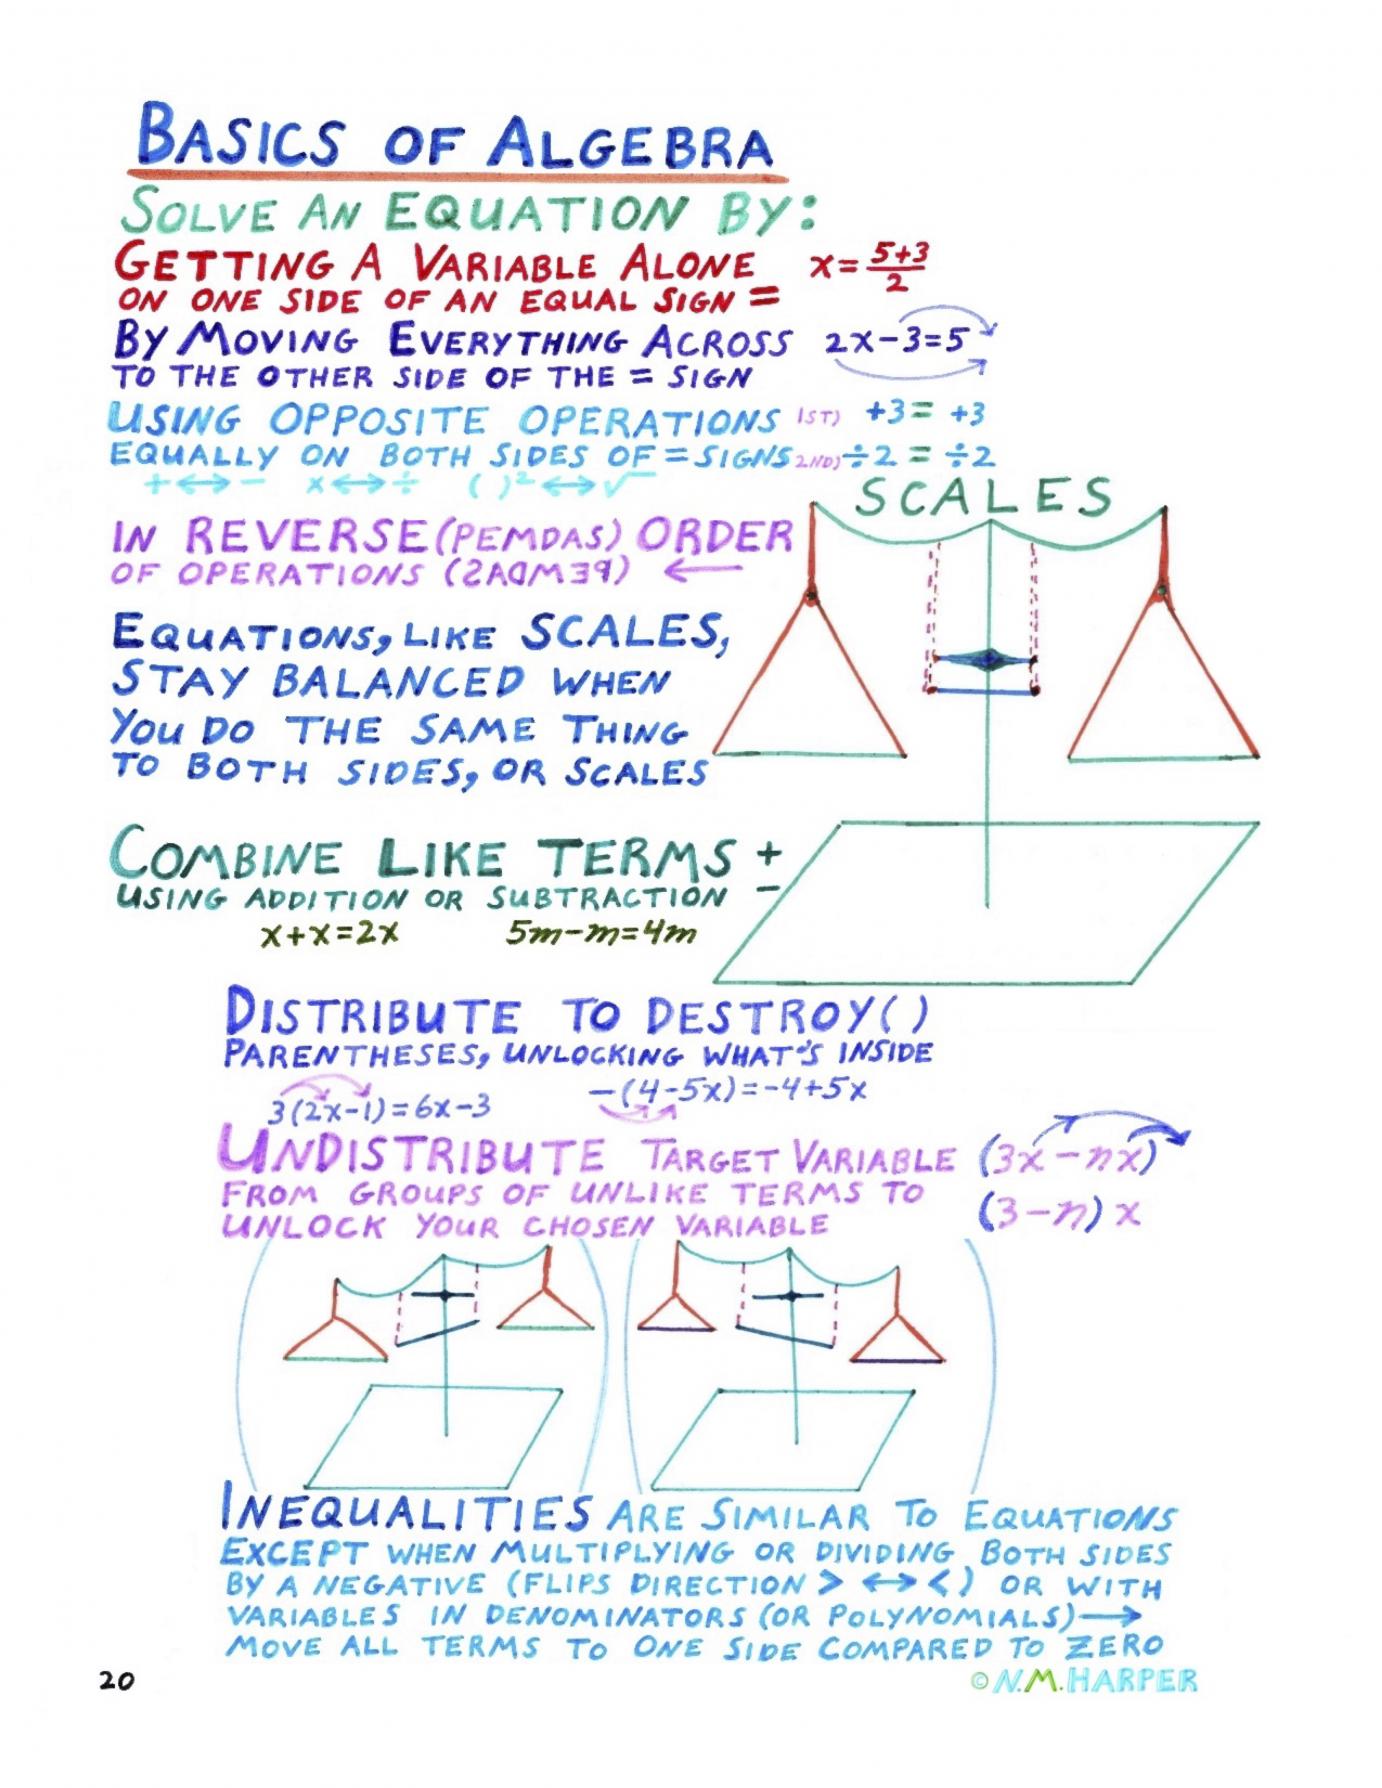 BASICS OF ALGEBRA
SOLVE AN EQUATION BY:
GETTING A VARIABLE ALONE x = (5+3)/2
ON ONE SIDE OF AN EQUAL SIGN =
BY MOVING EVERYTHING ACROSS 2x-3=5
TO THE OTHER SIDE OF THE = SIGN
USING OPPOSITE OPERATIONS 1ST) +3 = +3
EQUALLY ON BOTH SIDES OF = SIGNS 2ND) ÷2 = ÷2
+ ↔ - x ↔ ÷ ( )² ↔ √
SCALES
IN REVERSE (PEMDAS) ORDER
OF OPERATIONS (SADMEP) ←
EQUATIONS, LIKE SCALES,
STAY BALANCED WHEN
YOU DO THE SAME THING
TO BOTH SIDES, OR SCALES
COMBINE LIKE TERMS +
USING ADDITION OR SUBTRACTION -
x+x=2x 5m-m=4m
DISTRIBUTE TO DESTROY ( )
PARENTHESES, UNLOCKING WHAT'S INSIDE
3(2x-1)=6x-3 -(4-5x)=-4+5x
UNDISTRIBUTE TARGET VARIABLE (3x-nx)
FROM GROUPS OF UNLIKE TERMS TO
UNLOCK YOUR CHOSEN VARIABLE (3-n)x
INEQUALITIES ARE SIMILAR TO EQUATIONS
EXCEPT WHEN MULTIPLYING OR DIVIDING BOTH SIDES
BY A NEGATIVE (FLIPS DIRECTION > ↔ <) OR WITH
VARIABLES IN DENOMINATORS (OR POLYNOMIALS) →
MOVE ALL TERMS TO ONE SIDE COMPARED TO ZERO
20 © N.M.HARPER